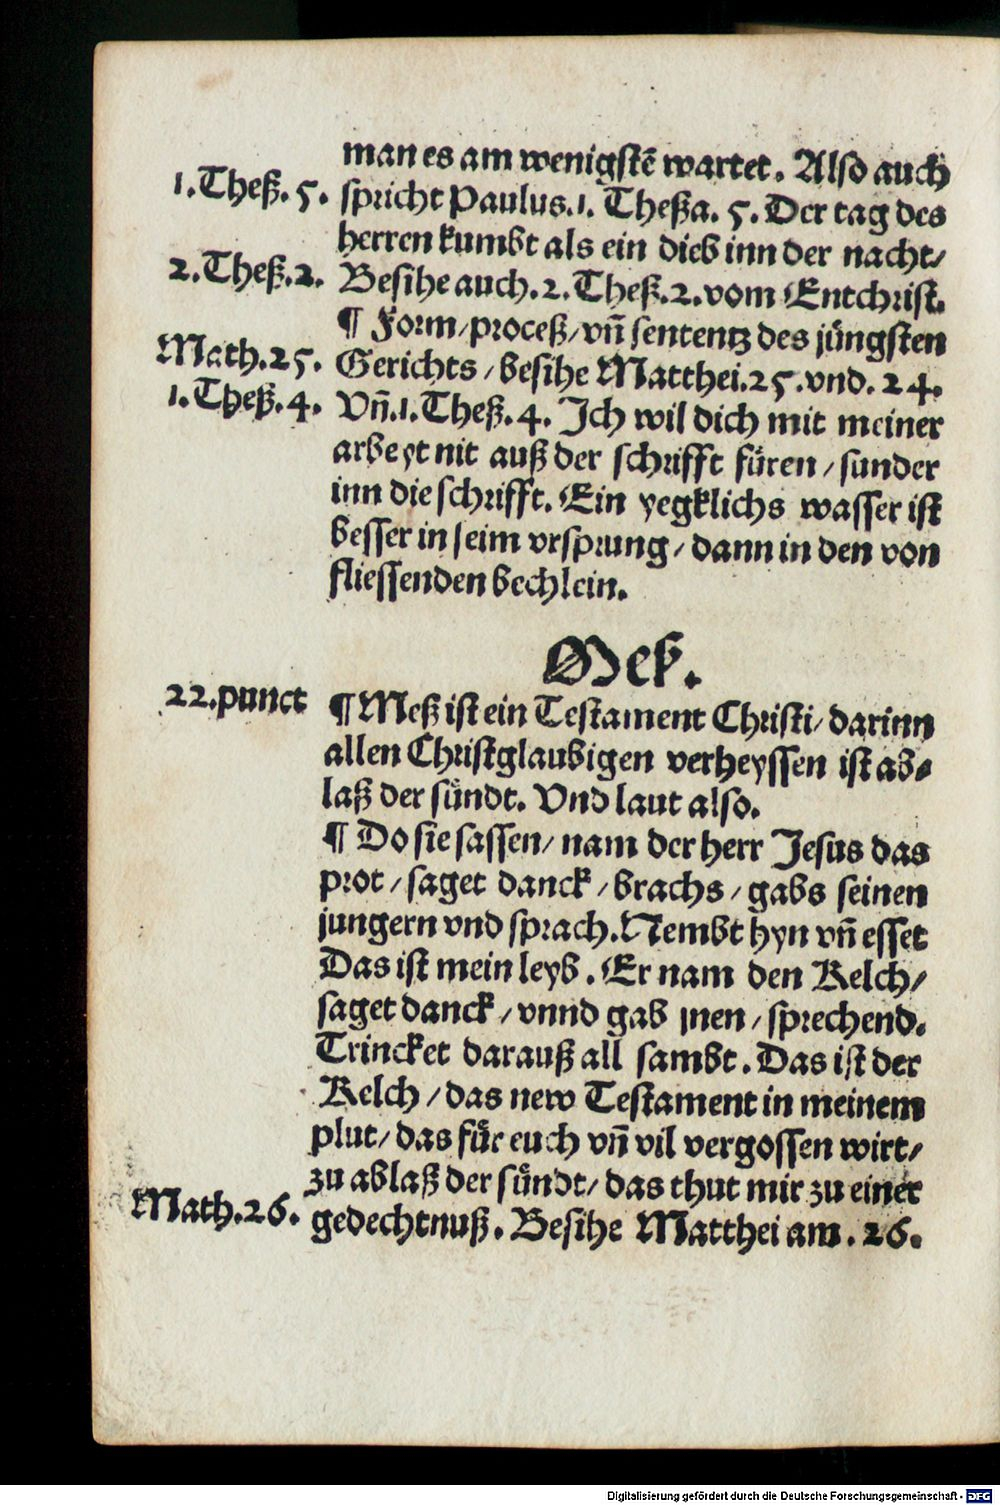 man es am wenigstē wartet. Also auch
1.Theß.5. spricht Paulus.1. Theßa. 5. Der tag des
herren kumbt als ein dieb inn der nacht/
2.Theß.2. Besihe auch.2.Theß.2.vom Entchrist.
¶ Form/proceß/vñ sententz des jüngsten
Math.25. Gerichts/besihe Matthei.25.vnd.24.
1.Theß.4. Vñ.1.Theß.4. Ich wil dich mit meiner
arbeyt nit auß der schrifft füren/sunder
inn die schrifft. Ein yegklichs wasser ist
besser in seim vrsprung/dann in den von
fliessenden bechlein.
Meß.
22.punct ¶ Meß ist ein Testament Christi/darinn
allen Christglaubigen verheyssen ist ab⸗
laß der sündt. Vnd laut also.
¶ Do sie sassen/nam der herr Jesus das
prot/saget danck/brachs/gabs seinen
jungern vnd sprach. Nembt hyn vñ esset
Das ist mein leyb. Er nam den Kelch/
saget danck/vnnd gab jnen/sprechend.
Trincket darauß all sambt. Das ist der
Kelch/das new Testament in meinem
plut/das für euch vñ vil vergossen wirt/
zu ablaß der sündt/das thut mir zu einer
Math.26. gedechtnuß. Besihe Matthei am.26.
Digitalisierung gefördert durch die Deutsche Forschungsgemeinschaft - DFG